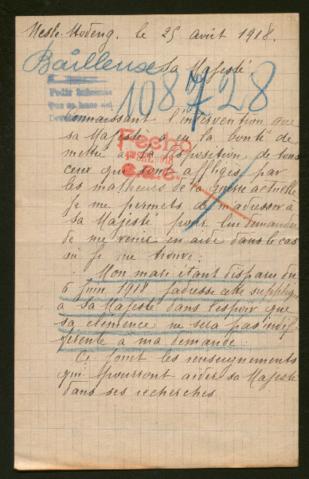 Nesle-Hodeng. le 25 août 1918.
Bailleux
Sa Majesté
108728
Connaissant l'intervention que
sa Majesté a eu la bonté de
mettre à la disposition de tous
ceux qui sont affligés par
les malheurs de la guerre actuelle
Je me permets de m'adresser à
sa Majesté pour lui demander
de me venir en aide dans le cas
où je me trouve.
Fecho
Mon mari étant disparu du
6 juin 1918 j'adresse cette supplique
à Sa Majesté dans l'espoir que
sa clémence ne sera pas indif
férente à ma demande.
Ce sont les renseignements
qui pourront aider sa Majesté
dans ses recherches.